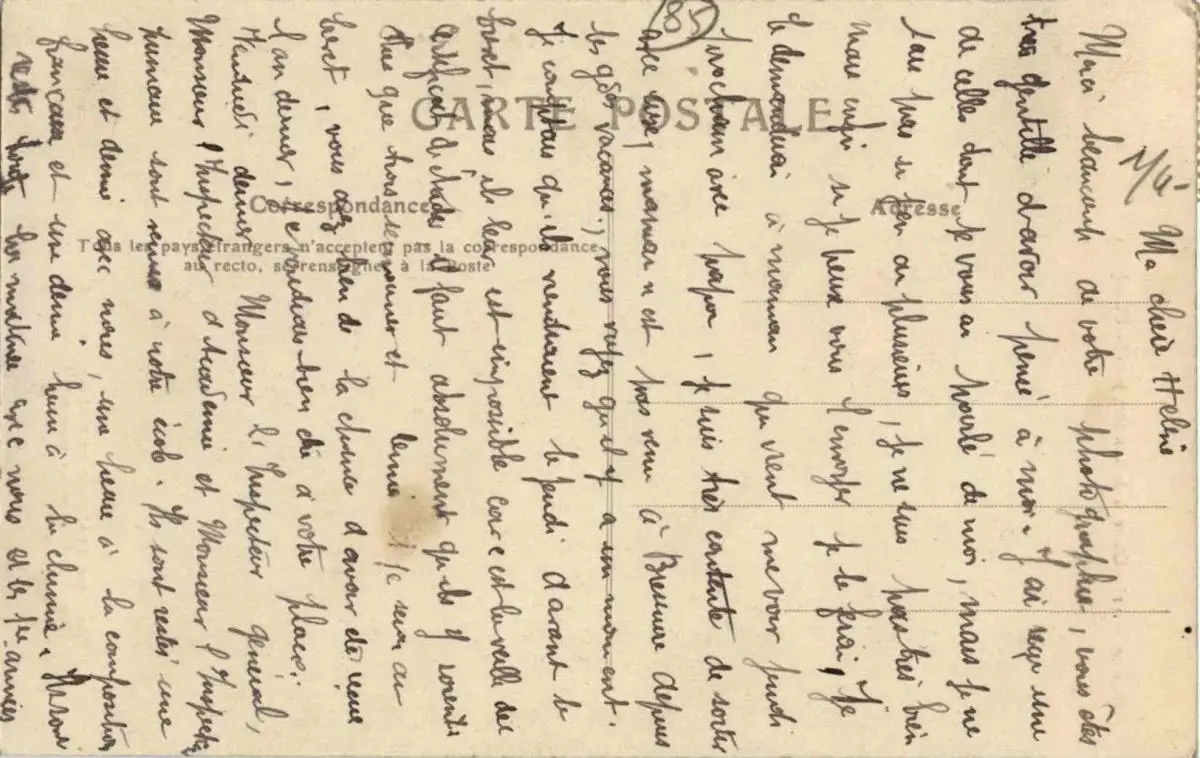 CARTE POSTALE
Correspondance
Adresse
Tous les pays étrangers n'acceptent pas la correspondance
au recto, se renseigner à la Poste
85
Ma chère Hélène
Merci beaucoup de votre photographie, vous êtes
très gentille d'avoir pensé à moi. J'ai reçu une
de celles dont je vous ai parlé de moi, mais je ne
sais pas si j'en ai plusieurs, je ne suis pas très bien
mais enfin si je peux vous l'envoyer je le ferai, Je
le demanderai à maman qui vient me voir jeudi
prochain avec papa, je suis très contente de sortir
avec eux, maman n'est pas venu à depuis
les gdes vacances, vous voyez qu'il y a un moment.
Je comptais qu'ils viendraient le jeudi avant le
brevet, mais ils leur est impossible car c'est la veille du
certificat d'études il faut absolument qu'ils y soient.
Plus que trois semaines et demie et je serai au
brevet, vous avez bien de la chance d'avoir été
l'an dernier, je voudrais bien être à votre place.
Vendredi dernier Monsieur l'Inspecteur général,
Monsieur l'Inspecteur d'Académie et Monsieur l'Inspect
primaire sont venus à notre école. Ils sont restés une
heure et demie avec nous, une heure à la composition
française et une demi heure à la chimie.
toute la matinée avec nous et les années